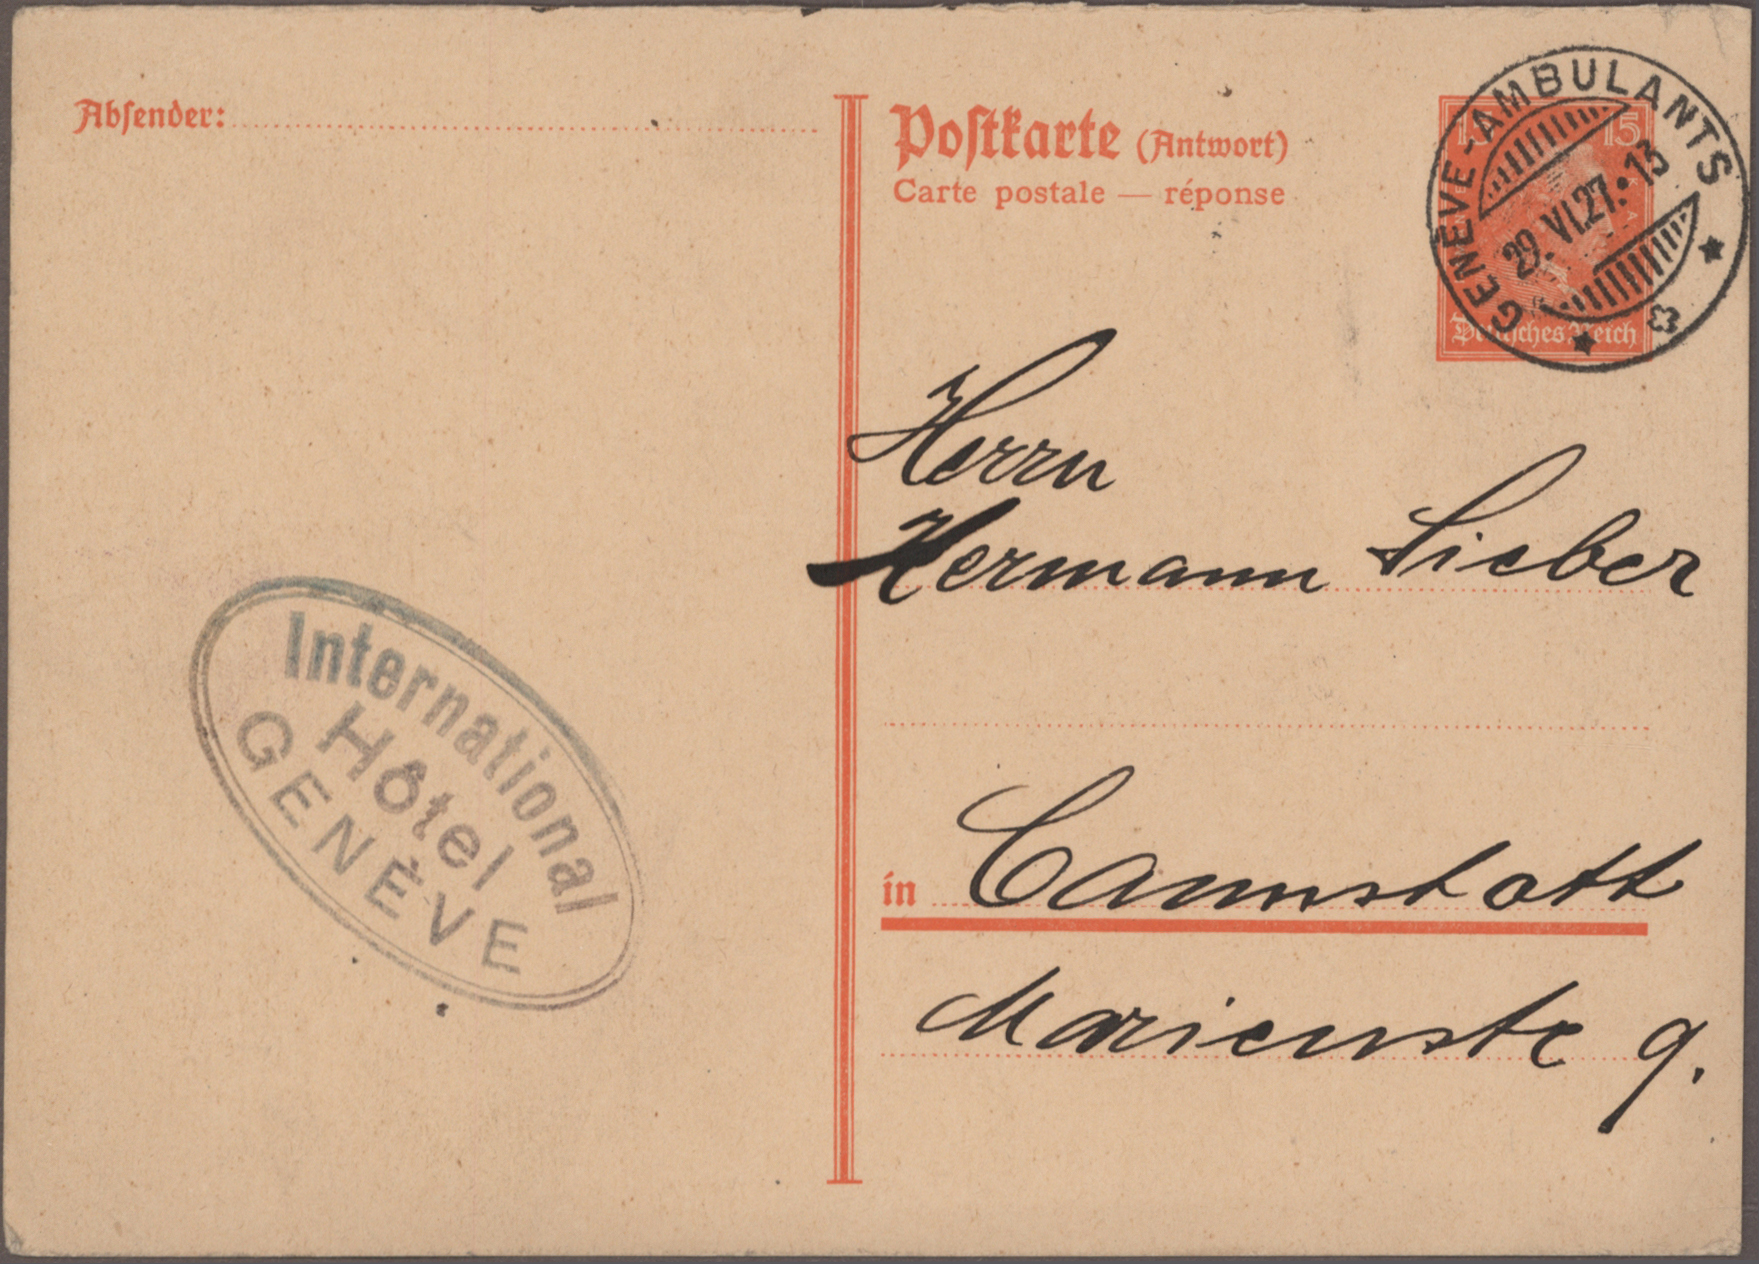 Absender:
Postkarte (Antwort)
Carte postale — réponse
15 15
Deutsches Reich
GENÈVE-AMBULANTS
29. VI. 27.·13
Herrn
Hermann Sieber
in Cannstatt
Marienstr 9.
International
Hôtel
GENÈVE